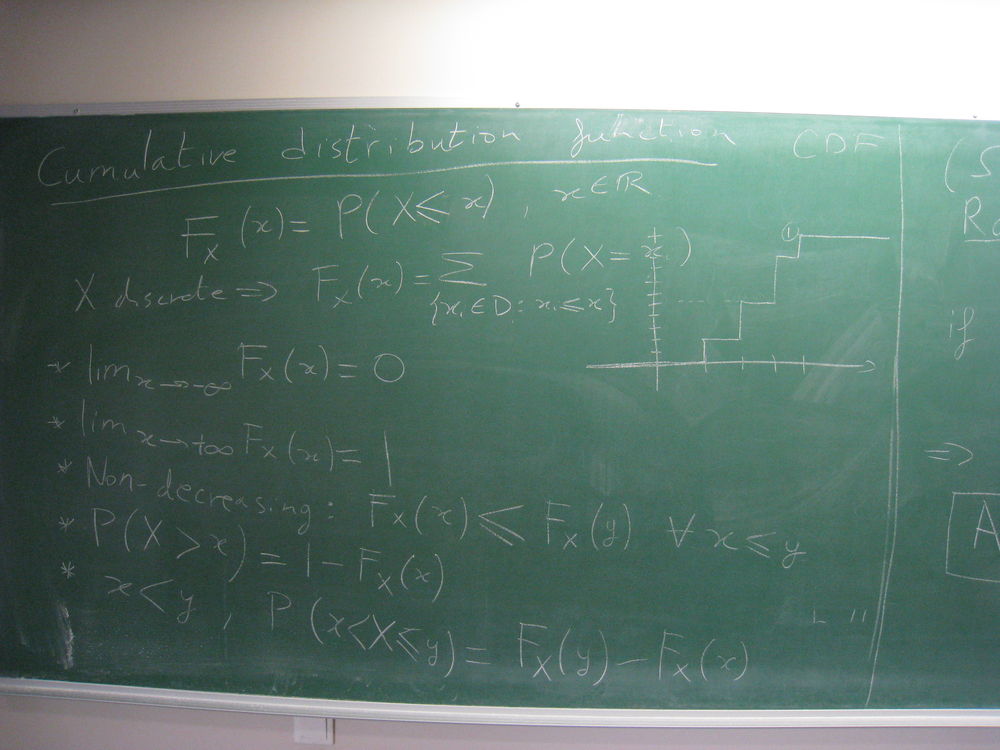 Cumulative distribution function CDF
F_X (x) = P(X ≤ x), x ∈ ℝ
X discrete ⇒ F_X(x) = Σ_{x_i ∈ D : x_i ≤ x} P(X = x_i)
①
* lim_{x→-∞} F_X(x) = 0
* lim_{x→+∞} F_X(x) = 1
* Non-decreasing : F_X(x) ≤ F_X(y) ∀ x ≤ y
* P(X > x) = 1 - F_X(x)
* x < y , P(x < X ≤ y) = F_X(y) - F_X(x)
(S
Ra
if
⇒
A